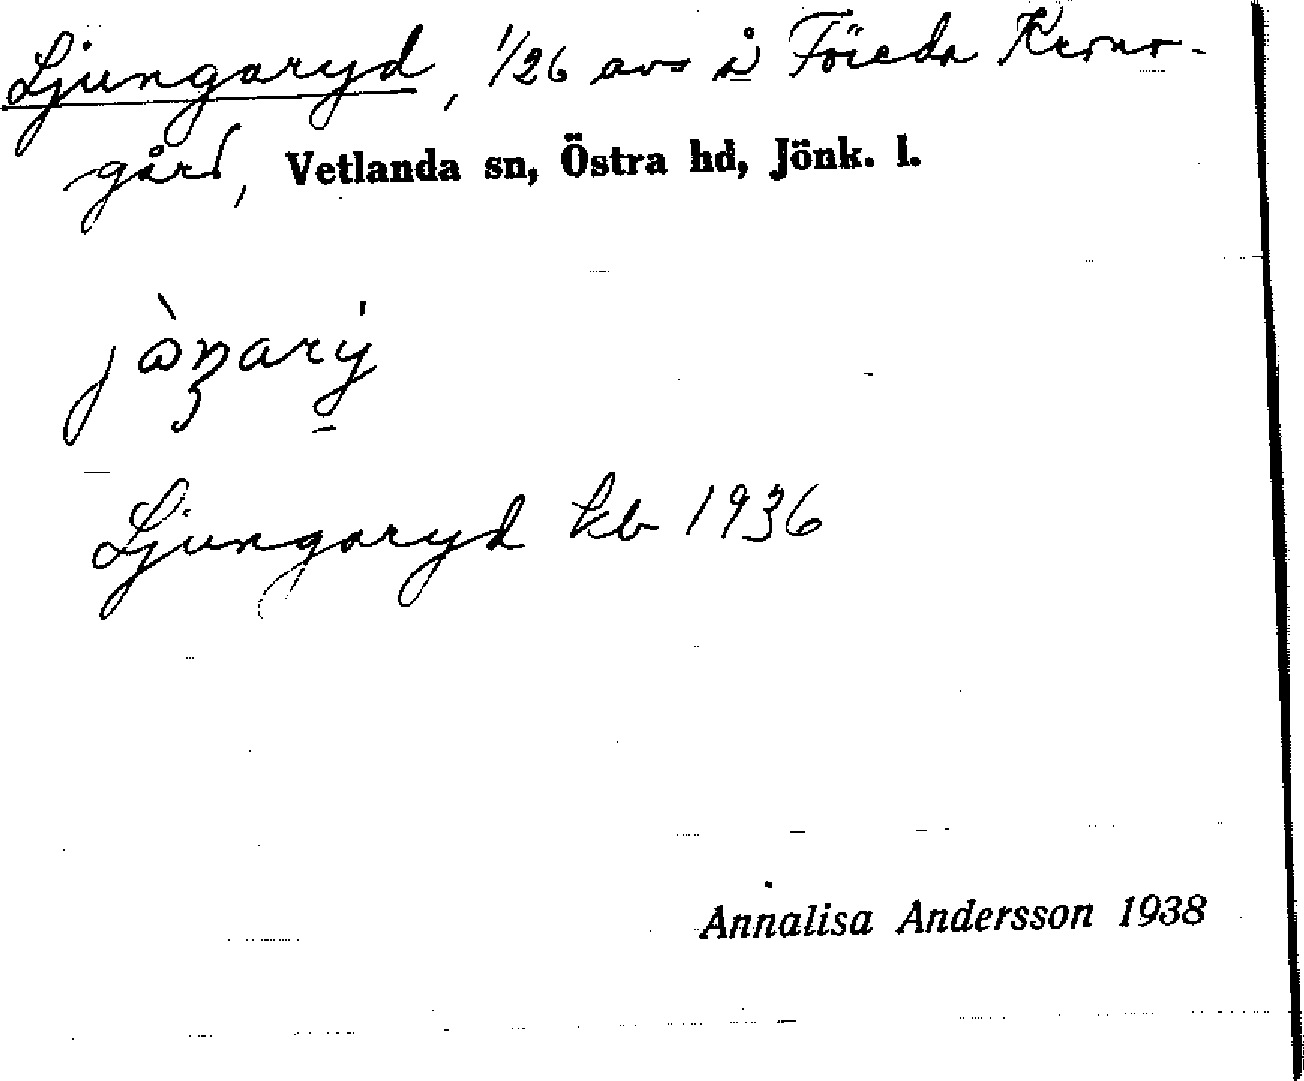 Ljungaryd, 1/26 av å Föreda Krono-
gård, Vetlanda sn, Östra hd, Jönk. l.
Ljungaryd kb 1936
Annalisa Andersson 1938